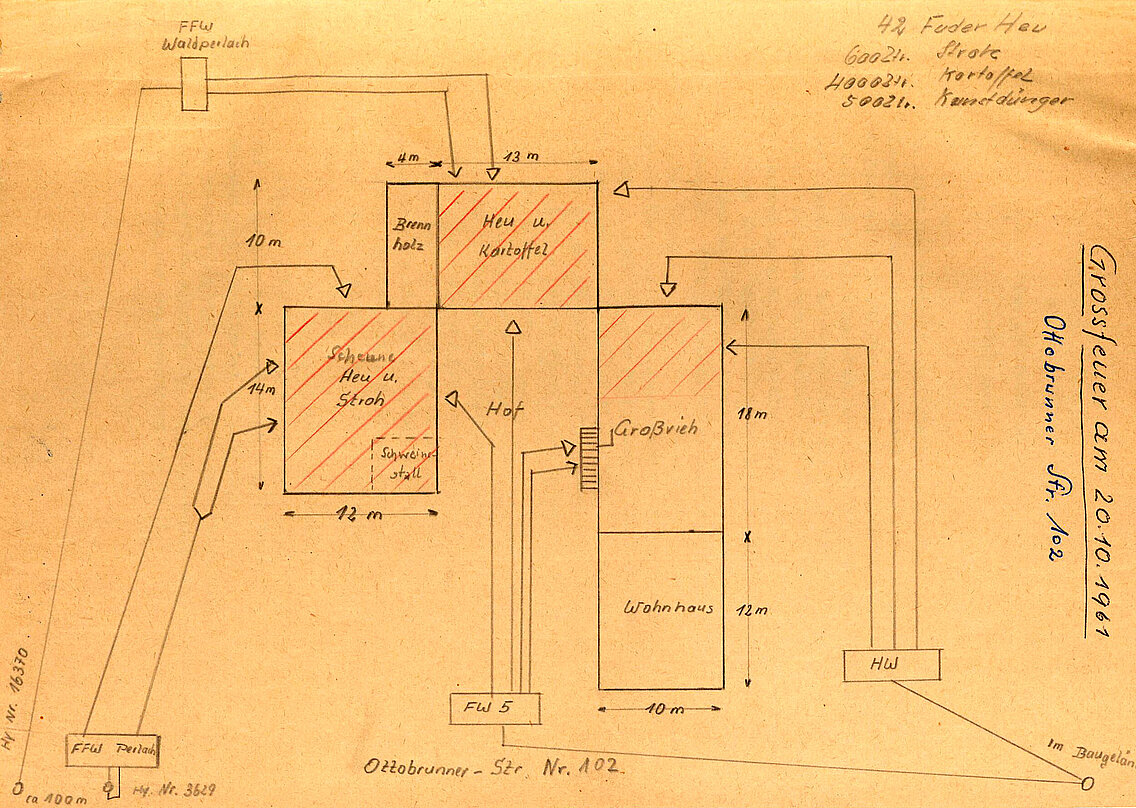 FFW
Waldperlach
42 Fuder Heu
600Ztr. Stroh
4000Ztr. Kartoffel
500Ztr. Kunstdünger
4m
13 m
Brenn
holz
Heu u.
Kartoffel
10 m
Scheune
Heu u.
Stroh
14m
Schweine-
stall
12 m
Hof
Großvieh
18m
Wohnhaus
12m
10 m
Grossfeuer am 20.10.1961
Ottobrunner Str. 102
HW
FW 5
FFW Perlach
Hy. Nr. 16370
ca 100m
Hy. Nr. 3629
Ottobrunner-Str. Nr. 102
Im Baugelän